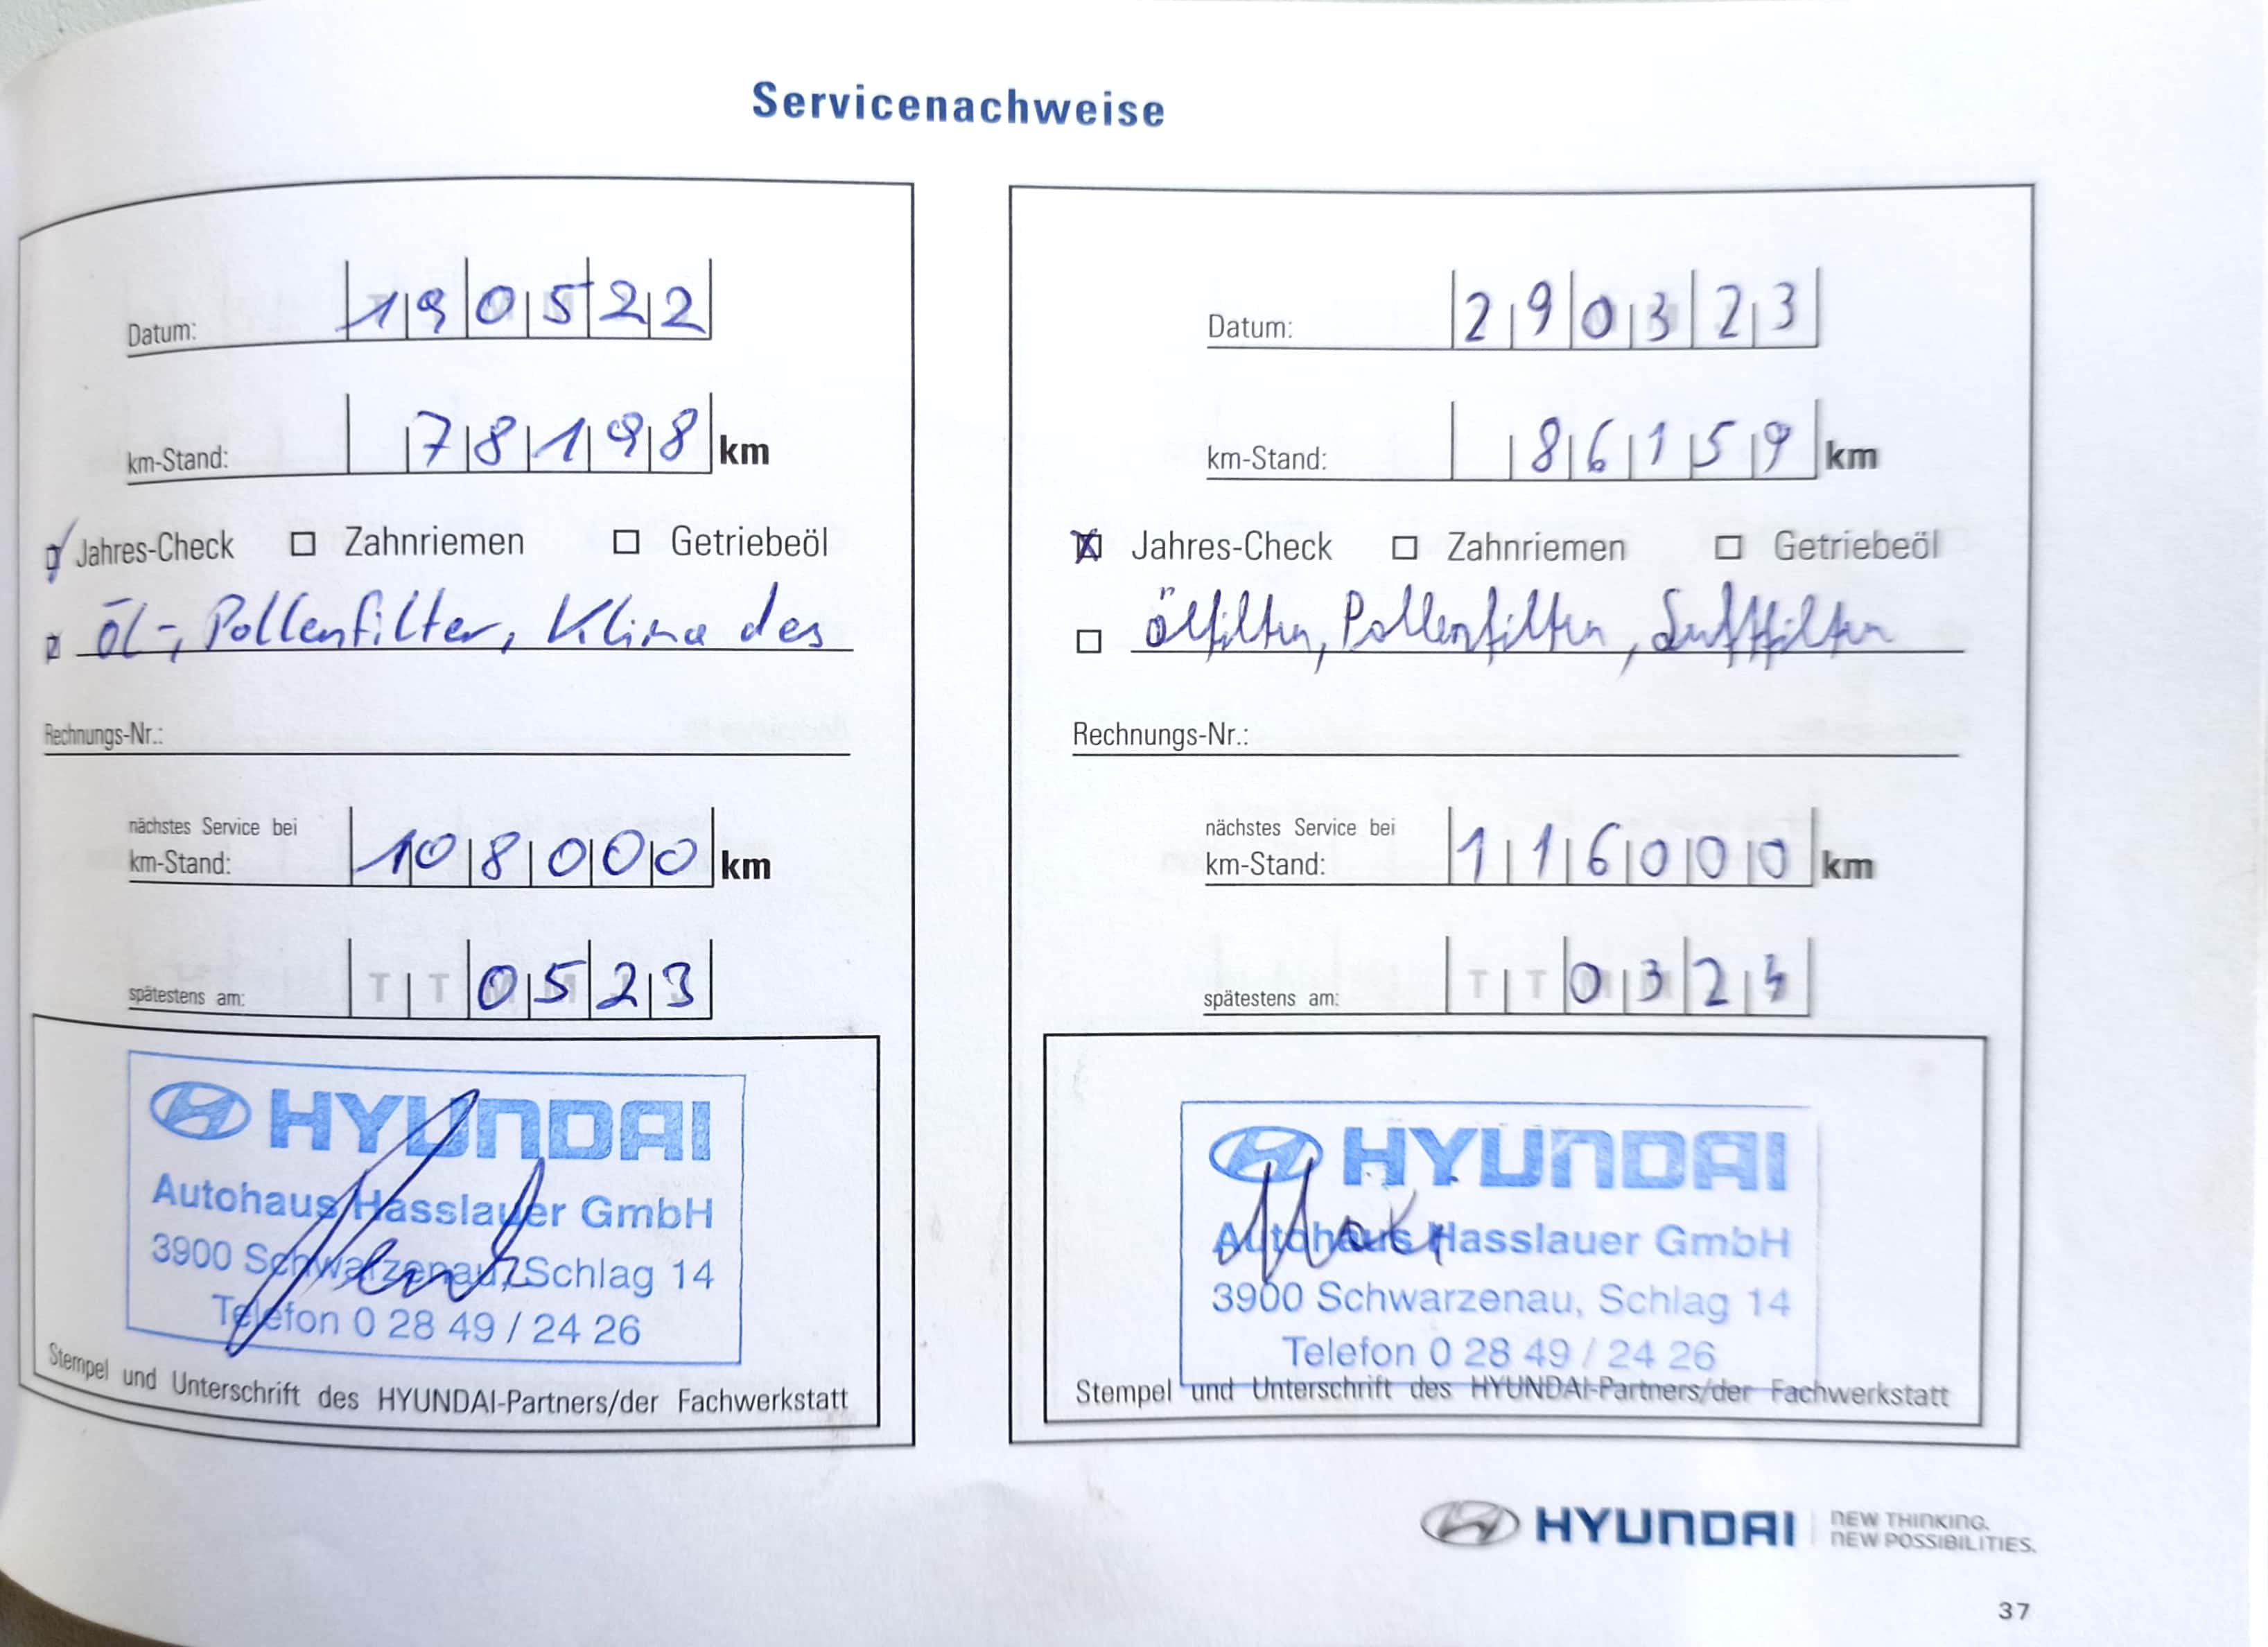 Servicenachweise
Datum: 190522
km-Stand: 78198 km
Jahres-Check Zahnriemen Getriebeöl
Öl-, Pollenfilter, Klima des
Rechnungs-Nr.:
nächstes Service bei
km-Stand: 108000 km
spätestens am: TT 0523
HYUNDAI
Autohaus Hasslauer GmbH
3900 Schwarzenau, Schlag 14
Telefon 0 28 49 / 24 26
Stempel und Unterschrift des HYUNDAI-Partners/der Fachwerkstatt
Datum: 290323
km-Stand: 86159 km
Jahres-Check Zahnriemen Getriebeöl
Ölfilter, Pollenfilter, Luftfilter
Rechnungs-Nr.:
nächstes Service bei
km-Stand: 116000 km
spätestens am: TT 0324
HYUNDAI
Autohaus Hasslauer GmbH
3900 Schwarzenau, Schlag 14
Telefon 0 28 49 / 24 26
Stempel und Unterschrift des HYUNDAI-Partners/der Fachwerkstatt
HYUNDAI NEW THINKING.
NEW POSSIBILITIES.
37